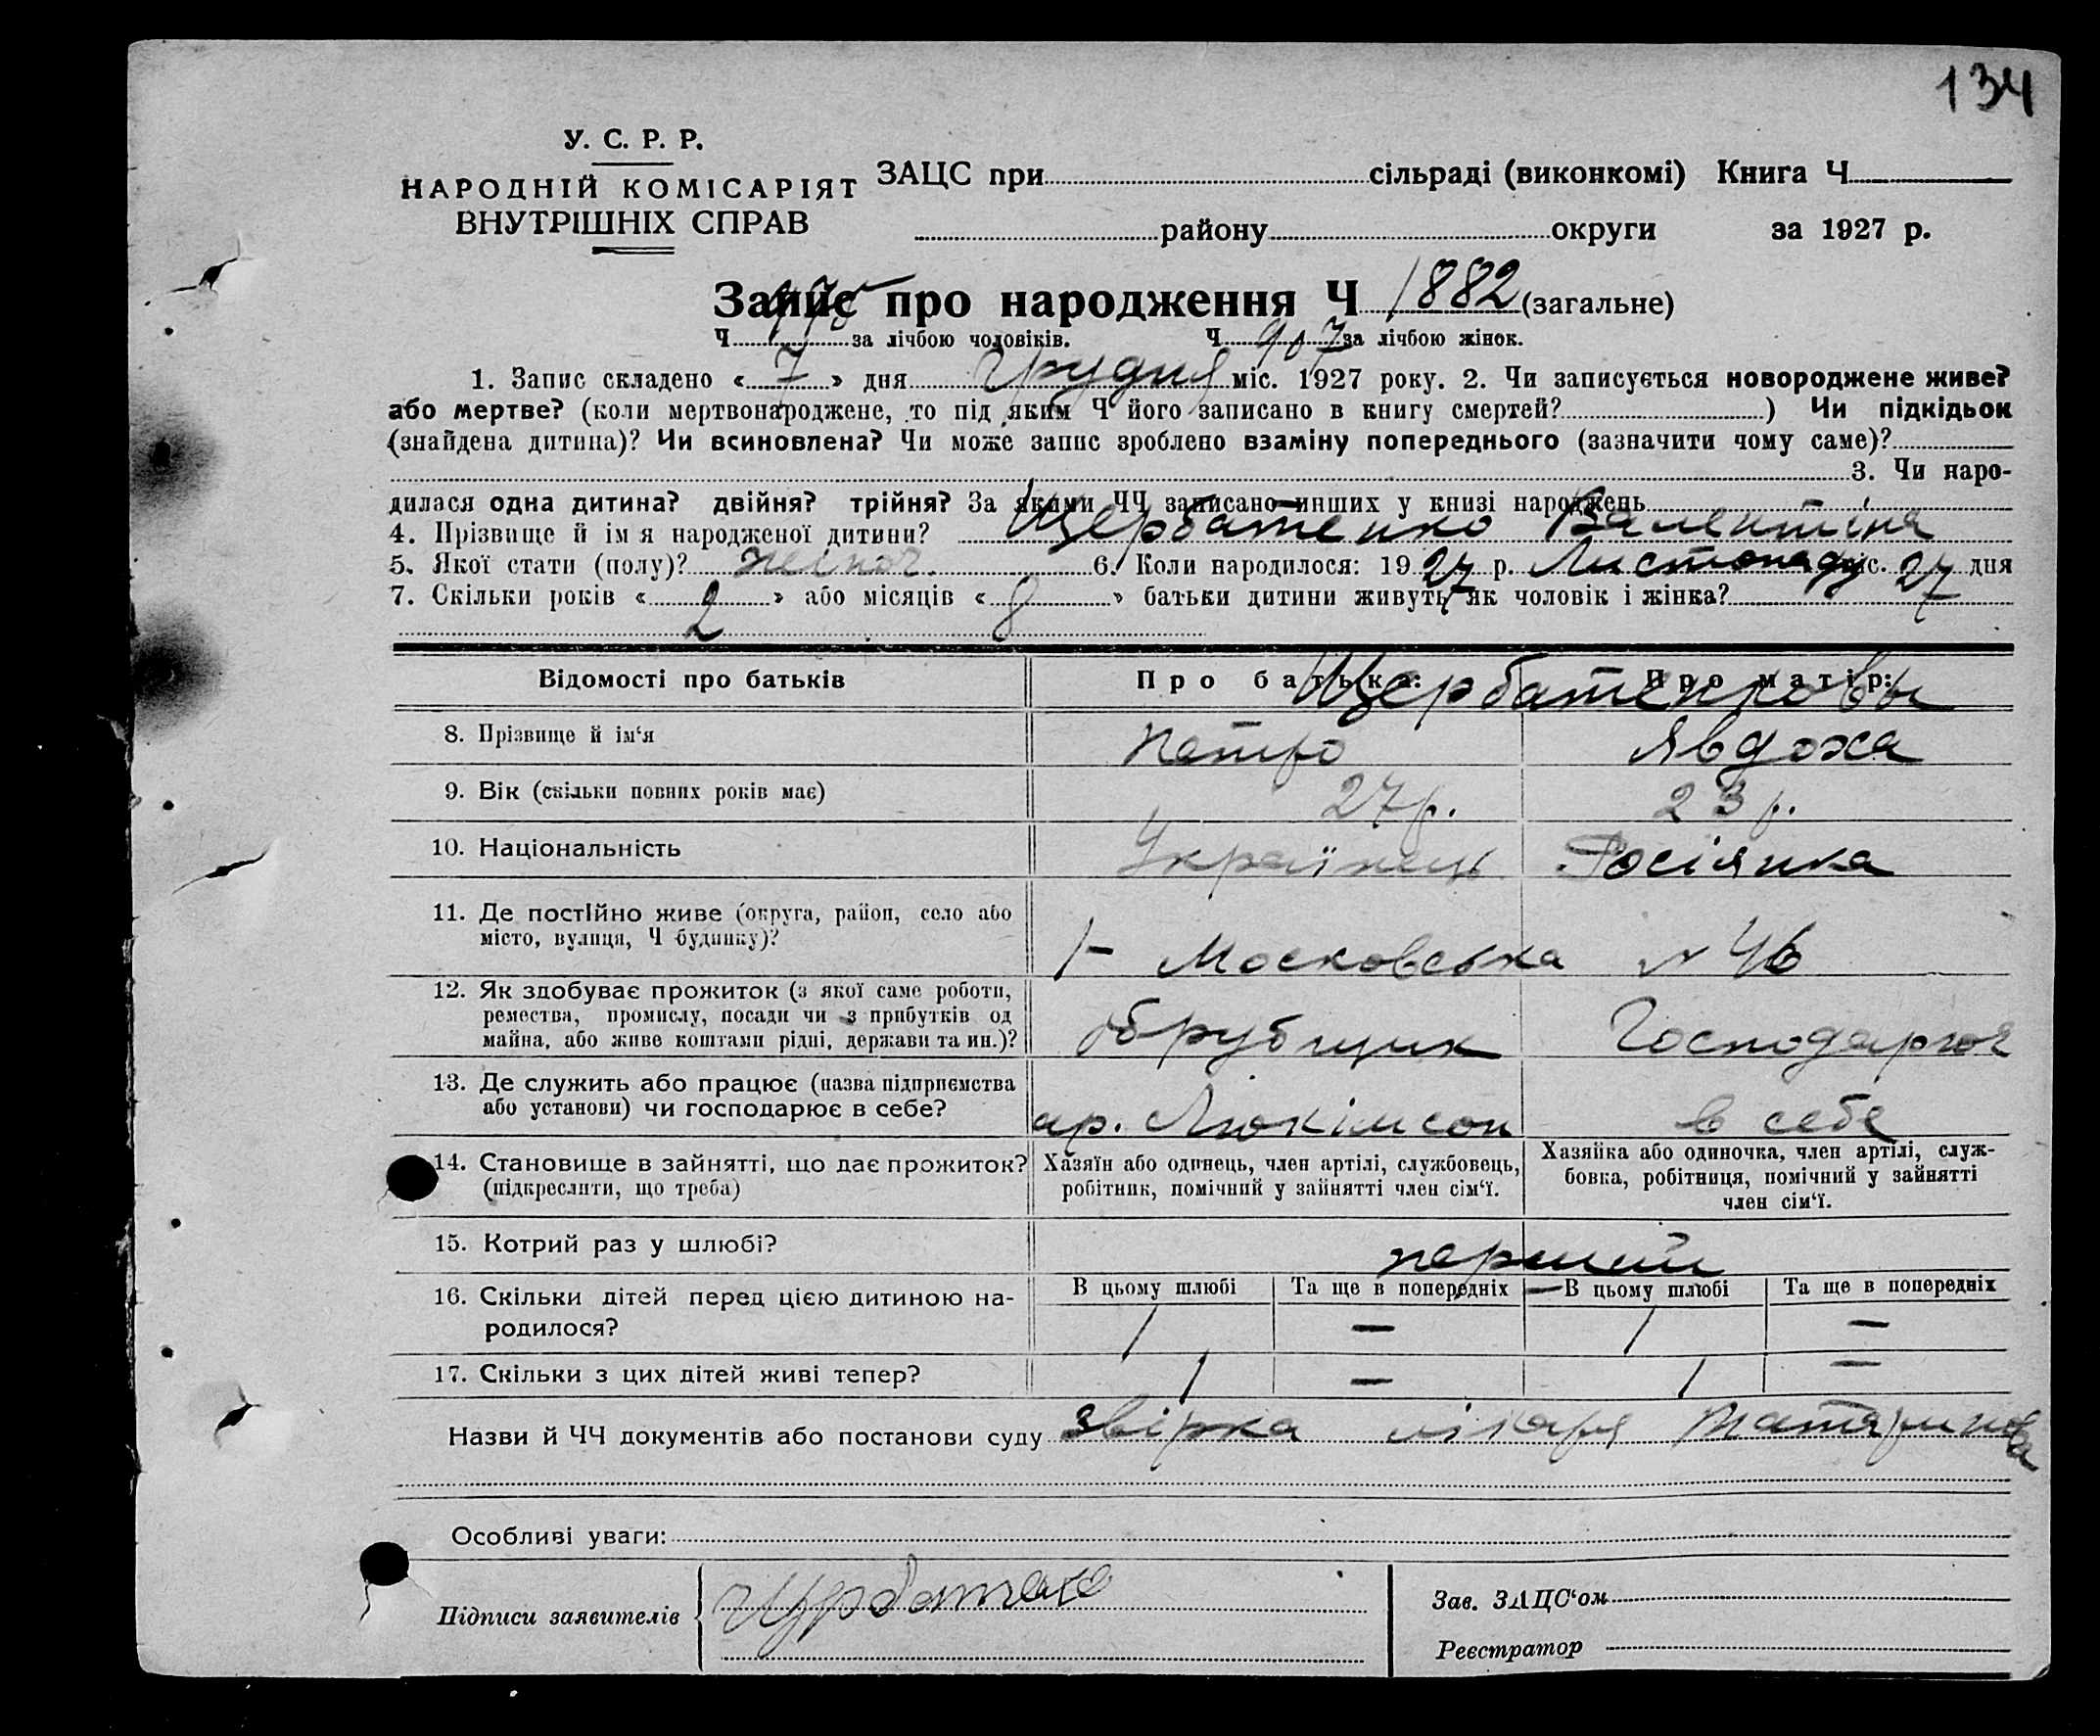 134
У. С. Р. Р.
НАРОДНІЙ КОМІСАРІЯТ
ВНУТРІШНІХ СПРАВ
ЗАЦС при сільраді (виконкомі) Книга Ч
району округи за 1927 р.
Запис про народження Ч 1882 (загальне)
Ч 975 за лічбою чоловіків. Ч 907 за лічбою жінок.
1. Запис складено « 7 » дня Грудня міс. 1927 року. 2. Чи записується новороджене живе?
або мертве? (коли мертвонароджене, то під яким Ч його записано в книгу смертей? ) Чи підкідьок
(знайдена дитина)? Чи всиновлена? Чи може запис зроблено взаміну попереднього (зазначити чому саме)?
3. Чи наро-
дилася одна дитина? двійня? трійня? За якими ЧЧ записано инших у книзі народжень
4. Прізвище й ім я народженої дитини? Щербатенко Валентіна
5. Якої стати (полу)? жіноч. 6. Коли народилося: 19 27 р. Листопаду міс. 27 дня
7. Скільки років « 2 » або місяців « 8 » батьки дитини живуть як чоловік і жінка?
Відомості про батьків Про батька: Про матір:
Щербатенкови
8. Прізвище й ім‘я Петро Явдоха
9. Вік (скільки повних років має) 27 р. 23 р.
10. Національність Українець Росіянка
11. Де постійно живе (округа, район, село або
місто, вулиця, Ч будинку)?
1- Московська № 46
12. Як здобуває прожиток (з якої саме роботи,
ремества, промислу, посади чи з прибутків од
майна, або живе коштами рідні, держави та ин.)?
обрубщик Господарює
13. Де служить або працює (назва підприємства
або установи) чи господарює в себе?
ар. в себе
14. Становище в зайнятті, що дає прожиток?
(підкреслити, що треба)
Хазяїн або одинець, член артілі, службовець,
робітник, помічний у зайнятті член сім‘ї.
Хазяйка або одиночка, член артілі, служ-
бовка, робітниця, помічний у зайнятті
член сім‘ї.
15. Котрий раз у шлюбі? перший
16. Скільки дітей перед цією дитиною на-
родилося?
В цьому шлюбі Та ще в попередніх В цьому шлюбі Та ще в попередніх
1 — 1 —
17. Скільки з цих дітей живі тепер? 1 — 1 —
Назви й ЧЧ документів або постанови суду звірка лікаря Татаринова
Особливі уваги:
Підписи заявителів
Зав. ЗАЦС‘ом
Реєстратор